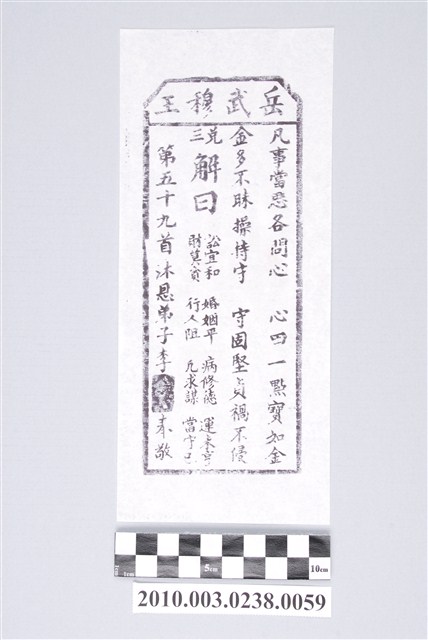 岳武穆王
凡事當思各問心 心四一點寶如金
金多不昧操持守 守固堅貞禍不侵
兌三
解曰
訟宜和 婚姻平 病修德 運未亨
財莫貪 行人阻 凡求謀 當守己
第五十九首沐恩弟子李 奉敬
1cm
5cm
10cm
2010.003.0238.0059